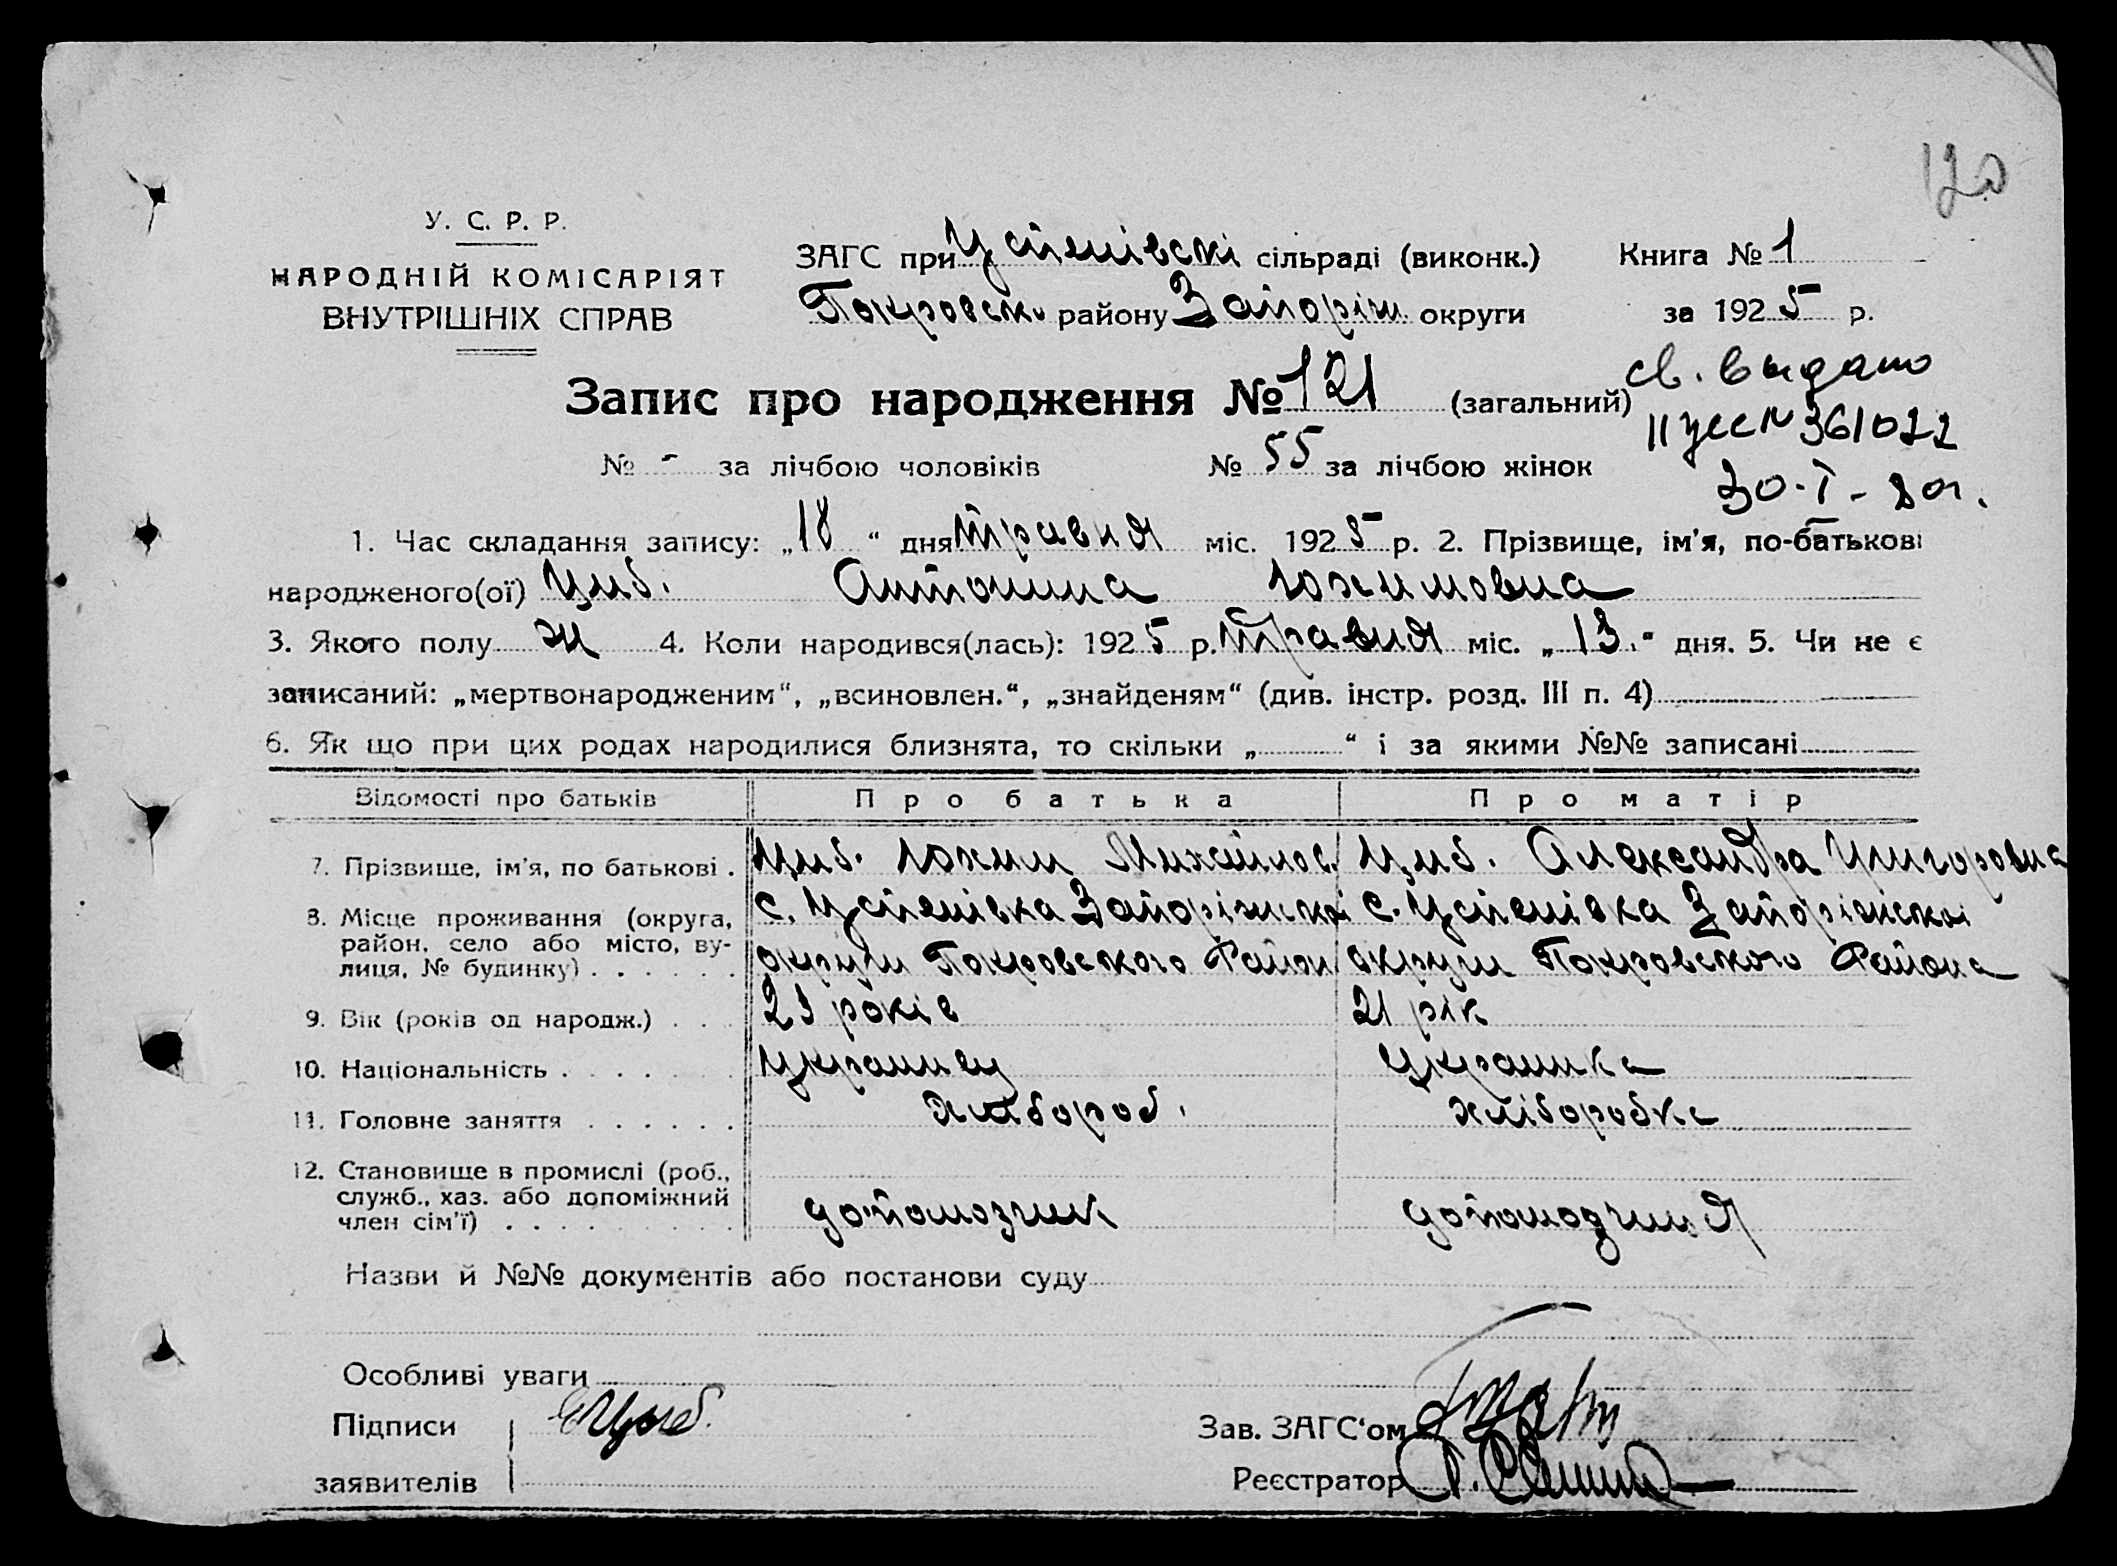 120
У. С. Р. Р.
НАРОДНІЙ КОМІСАРІЯТ
ВНУТРІШНІХ СПРАВ
ЗАГС при Успенівскі сільраді (виконк.) Книга № 1
Покровськ. району Запоріж. округи за 1925 р.
Запис про народження № 121 (загальний)
св. выдано
II № 361022
30-I-80г.
№ - за лічбою чоловіків № 55 за лічбою жінок
1. Час складання запису: „18“ дня травня міс. 1925 р. 2. Прізвище, ім'я, по-батькові
народженого(ої) Циб. Антонина Юхимовна
3. Якого полу ж 4. Коли народився(лась): 1925 р. травня міс. „13.“ дня. 5. Чи не є
записаний: „мертвонародженим“, „всиновлен.“, „знайденям“ (див. інстр. розд. III п. 4)
6. Як що при цих родах народилися близнята, то скільки „ “ і за якими №№ записані
Відомості про батьків Про батька Про матір
7. Прізвище, ім'я, по батькові . Циб. Юхим Михайлов. Циб. Александра Григоровна
8. Місце проживання (округа, район, село або місто, вулиця, № будинку) . . . . . .
с. Успенівка Запоріжскоі с. Успенівка Запоріжскоі
округи Покровського Район округи Покровського Района
9. Вік (років од народж.) . . . 23 років 21 рік
10. Національність . . . . . . Украинец Украинка
11. Головне заняття . . . . . . хлібороб. хліборобка
12. Становище в промислі (роб.,
служб., хаз. або допоміжний
член сім'ї) . . . . . . . . . помозчик
Назви й №№ документів або постанови суду
Особливі уваги
Підписи Циб.
заявителів
Зав. ЗАГС'ом
Реєстратор